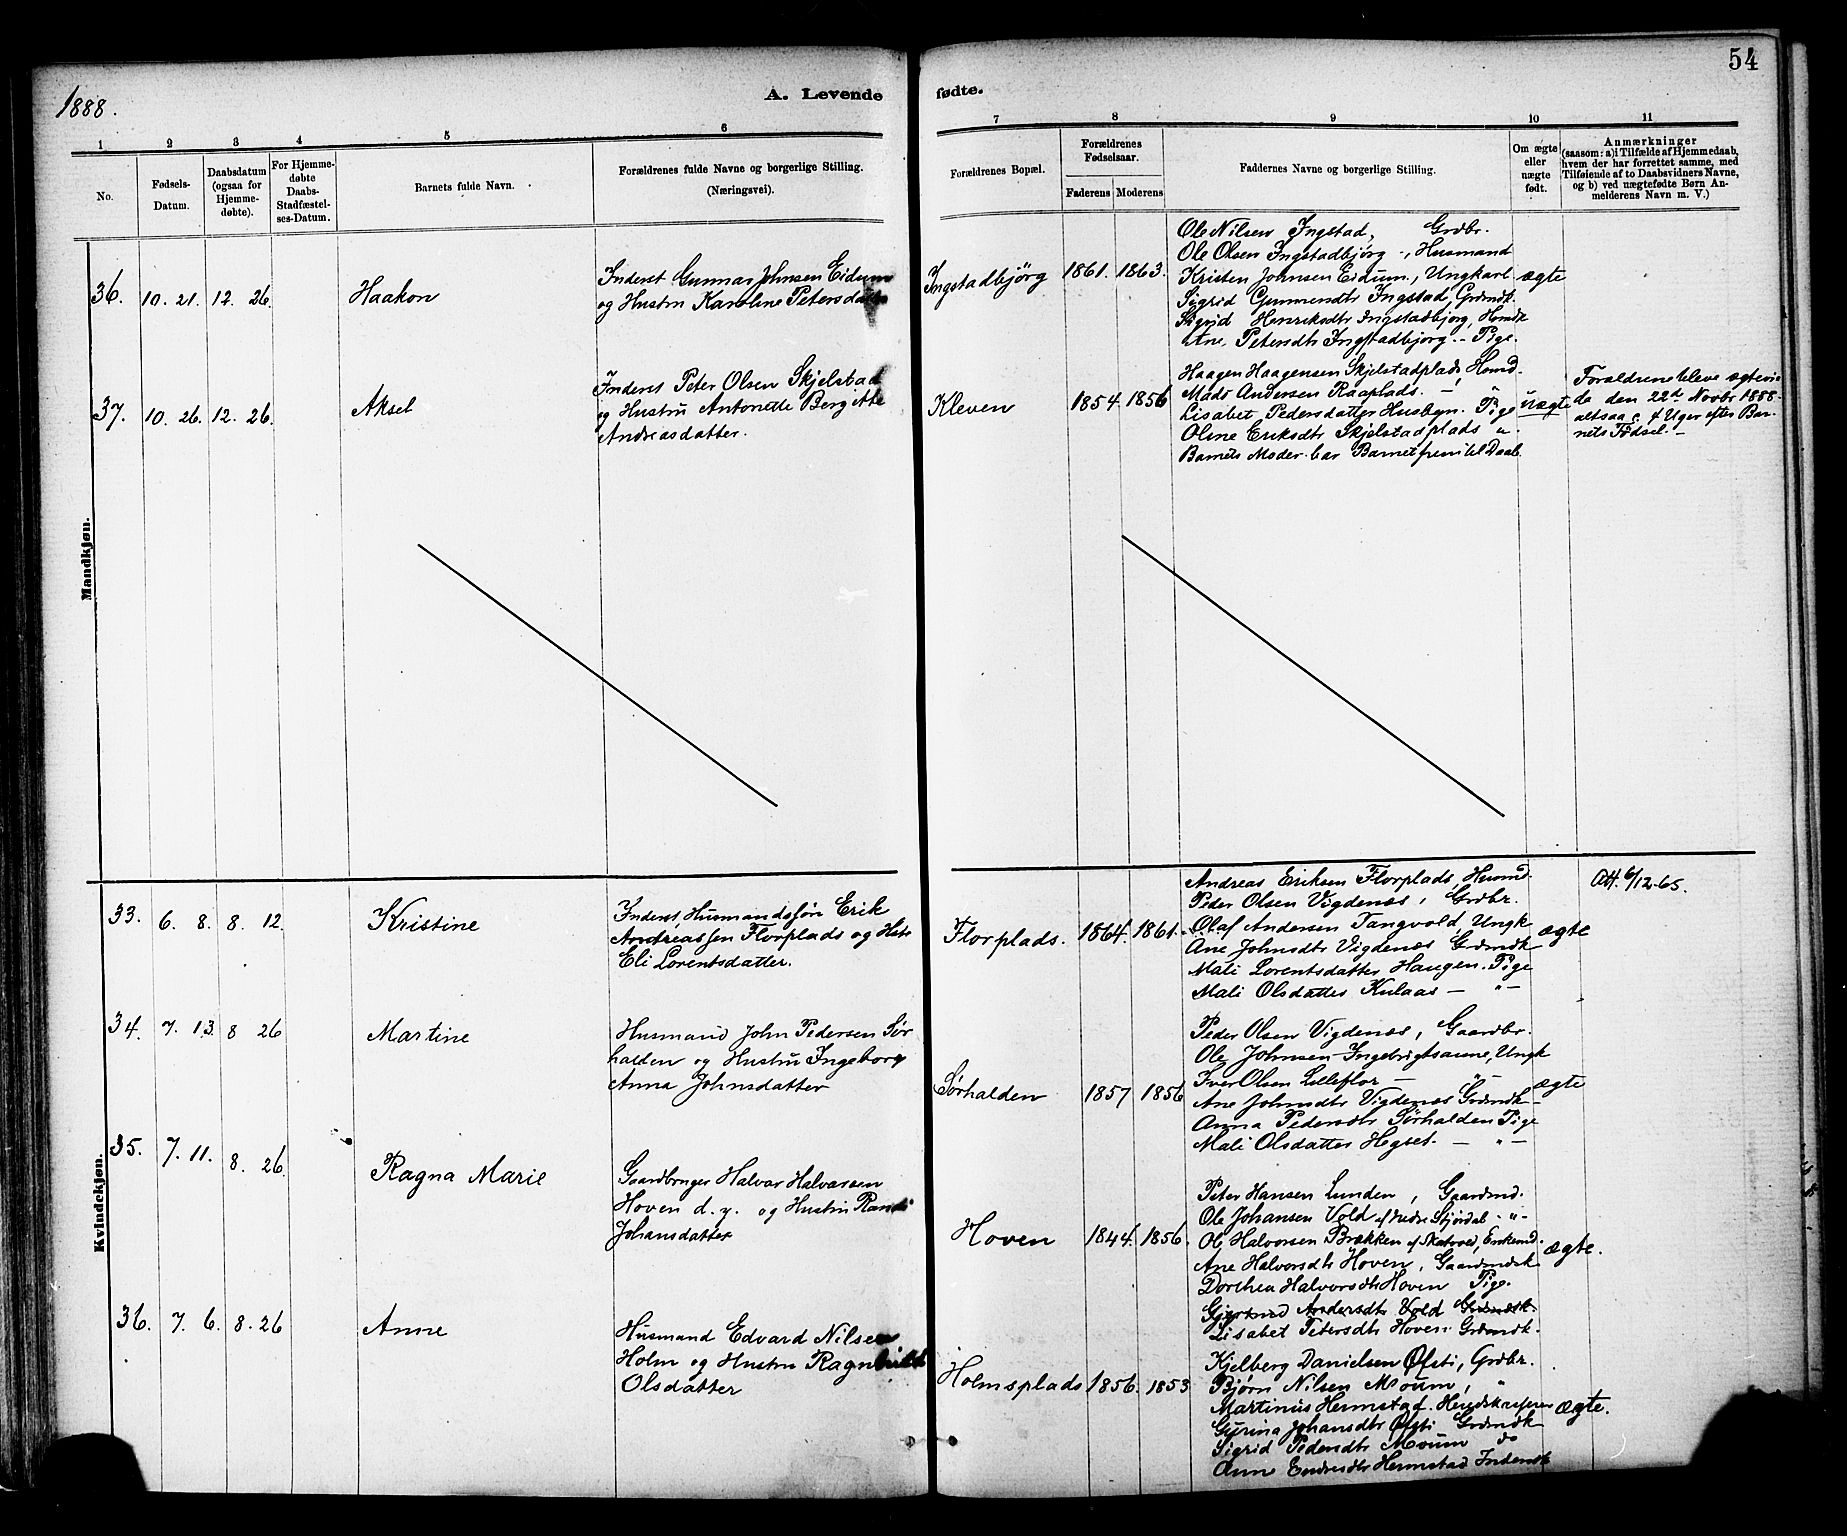 54
1888.
A. Levende
fødte.
1 2 3 4 5 6
7 8 9 10 11
No.
Fødsels-
Datum.
Daabsdatum
(ogsaa for
Hjemme-
døbte).
For Hjemme-
døbte
Daabs-
Stadfæstel-
ses-Datum.
Barnets fulde Navn.
Forældrenes fulde Navne og borgerlige Stilling.
(Næringsvei).
Forældrenes Bopæl.
Forældrenes
Fødselsaar.
Faderens Moderens
Faddernes Navne og borgerlige Stilling.
Om ægte
eller
uægte
født.
Anmærkninger
(saasom: a) i Tilfælde af Hjemmedaab,
hvem der har forrettet samme, med
Tilføiende af to Daabsvidners Navne,
og b) ved uægtefødte Børn An-
melderens Navn m. V.)
Mandkjøn.
36. 10. 21. 12. 26. Haakon
Inderst Gunnar Johnsen Eidum
og Hustru Karoline Petersdatter
Ingstadbjørg 1861. 1863.
Ole Nilsen Ingstad, Grdbr.
Ole Olsen Ingstadbjørg -, Husmand
Kristen Johnsen Eidum, Ungkarl
Sigrid Gunnersdtr Ingstad, Grdmdk.
Sigrid Henriksdtr Ingstadbjørg, Hsmdk
Ane Petersdtr Ingstadbjørg -- Pige.
ægte
37. 10. 26. 12. 26. Aksel
Inderst Peter Olsen Skjelstad
og Hustru Antonette Bergitte
Andreasdatter.
Kleven 1854. 1856
Haagen Haagensen Skjelstadplads, Hsmd.
Mads Andersen Raaplads. - "
Lisabet Pedersdatter Husbyn. Pige
Oline Eriksdtr Skjelstadplads "
Barnets Moder bar Barnet frem til Daab.
uægte
Forældrene bleve ægtevi-
de den 22de Novbr 1888.
altsaa c. 4 Uger efter Bar-
nets Fødsel. -
Kvindekjøn.
33. 6. 8. 8. 12. Kristine
Inderst, Husmandssøn Erik
Andreassen Florplads og Hstr
Eli Lorentsdatter.
Florplads. 1864. 1861.
Andreas Eriksen Florplads, Husmd.
Peder Olsen Vigdenæs, Grdbr.
Olaf Andersen Tangvold, Ungk
Ane Johnsdtr Vigdenæs Grdmdk
Mali Lorentsdatter Haugen. Pige
Mali Olsdatter Kulaas - " -
ægte
Att. 6/12-65.
34. 7. 13. 8 26 Martine
Husmand John Pedersen Sør
halden og Hustru Ingeborg
Anna Johnsdatter
Sørhalden 1857 1856
Peder Olsen Vigdenæs, Gaardbr.
Ole Johnsen Ingebrigtsaune, Ungk
Iver Olsen Lilleflor - " -
Ane Johnsdtr Vigdenæs Grdmdk -
Anna Pedersdtr Sørhalden Pige
Mali Olsdatter Hegset. - " -
ægte
35. 7. 11. 8. 26. Ragna Marie
Gaardbruger Halvar Halvarsen
Hoven d. y. og Hustru Randi
Johansdatter
Hoven 1844. 1856.
Peter Hansen Lunden, Gaardmd.
Ole Johansen Vold af Nedre Stjørdal - " -
Ol Halvorsen Brækken af Skatval, Enkemd.
Ane Halvorsdtr Hoven, Gaardmdsk
Dorthea Halvorsdtr Hoven Pige.
Gjertrud Andersdtr Vold Grdmdsk.
Lisabet Petersdtr Hoven Grdmdk.
ægte.
36. 7. 6. 8. 26 Anne
Husmand Edvard Nilsen
Holm og Hustru Ragnhild
Olsdatter
Holmsplads 1856. 1853
Kjelberg Danielsen Øfsti, Grdbr.
Bjørn Nilsen Moum, "
Martinus Hermstad.
Gurina Johansdtr Øfsti Grdmdk
Sigrid Pedersdtr Moum do
Anne Endresdtr Hermstad Inderst
ægte.